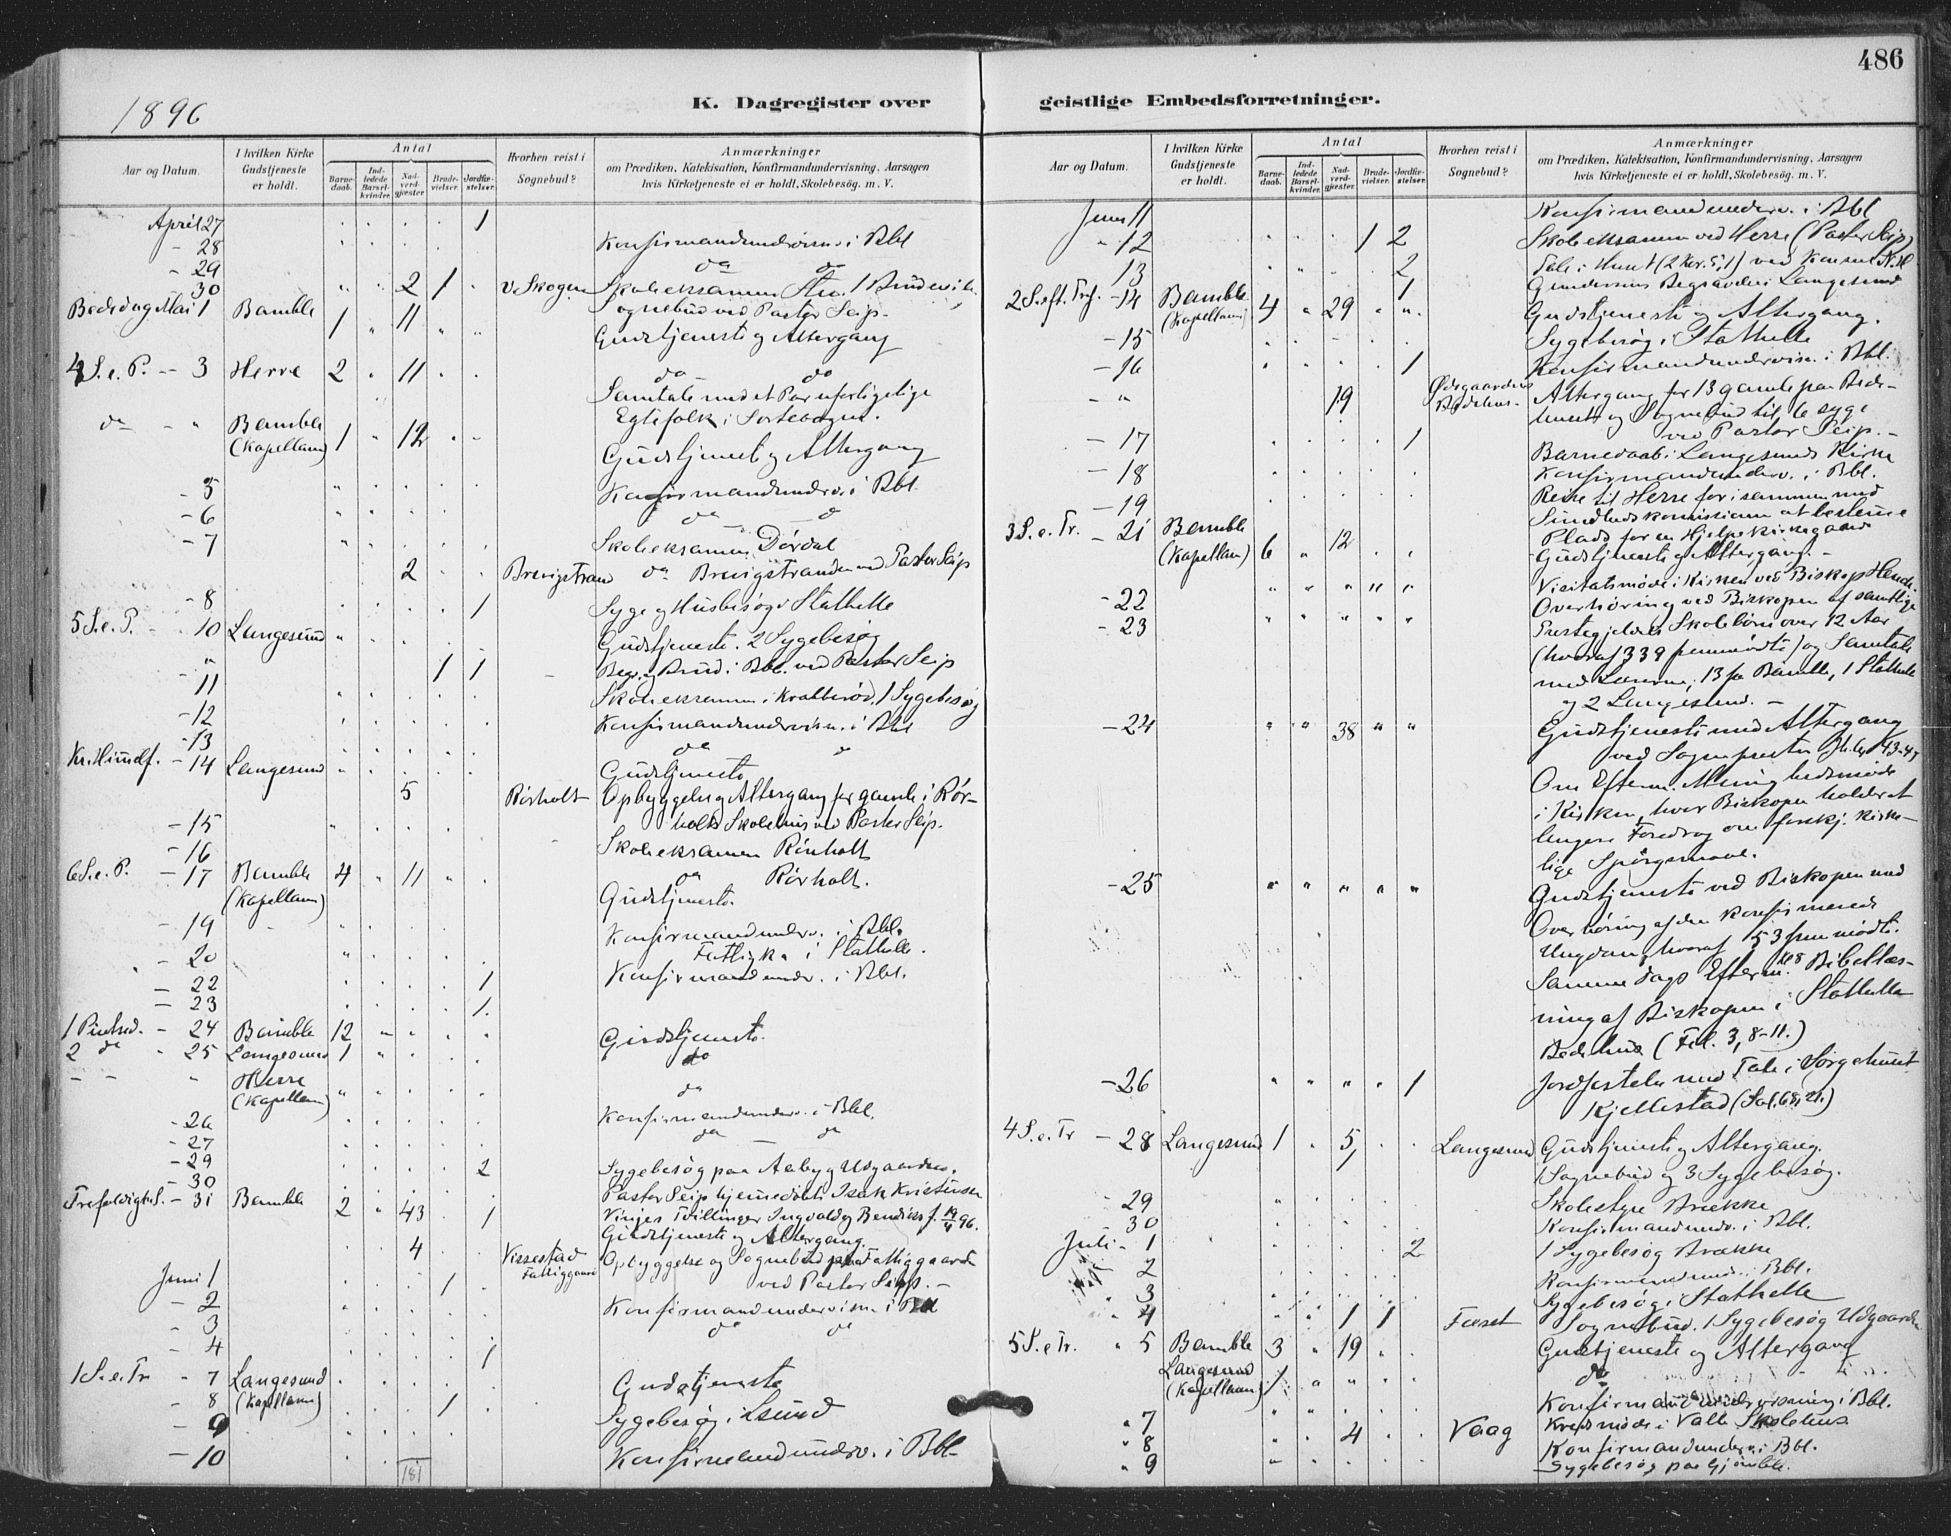 486
1896
K. Dagregister over geistlige Embedsforretninger.
Aar og Datum.
I hvilken Kirke Gudstjeneste er holdt.
Antal
Barnedaab.
Indledede Barselkvinder.
Nadverdgjester.
Brudevielser.
Jordfæstelser.
Hvorhen reist i Sognebud?
Anmærkninger
om Prædiken, Katekisation, Konfirmandundervisning, Aarsagen
hvis Kirketjeneste ei er holdt, Skolebesøg. m. V.
April 27 1
- 28 Konfirmandundervisn. i Bbl
- 29 do do
- 30 2 1 v. Skogen Skoleeksamen
Sognebud ved Pastor Seip.
Bededag Mai 1 Bamble 1 " 11 " " Gudstjeneste og Altergang
4 S. e. P. - 3 Herre 2 " 11 do do
Samtale med et Par uforligelige
Egtefolk i
do - " Bamble (Kapellanen) 1 " 12 Gudstjenest og Altergang
- 5 Konfirmandunderv. i Bbl.
- 6 do - d
- 7 Skoleeksamen Dørdal
2 Brevigstrand do Brevigstranden ved Pastor Seip
- 8 1 Syge og Husbesøg i Stathelle
5 S. e. P. - 10 Langesund Gudstjeneste. 2 Sygebesøg
" 1 1 Begr. og Brud. i Bbl. ved Pastor Seip
- 11 Skoleeksamen i Krabberød, 1 Sygebesøg
- 12 Konfirmandundervisn. i Bbl
- 13 do d
Kr. Himlf. - 14 Langesund Gudstjeneste
5 Rörholt Opbyggelse og Altergang for gamle i Rör-
holts Skolehus ved Pastor Seip.
- 15 Skoleeksamen Rönholt
- 16 do Rörholt.
6 S. e. P. - 17 Bamble (Kapellanen) 4 " 11 Gudstjeneste
- 19 Konfirmandunderv. i Bbl.
- 20 i Stathelle.
Konfirmandunder. i Bbl.
- 22 1
- 23 1
1 Pintsed. - 24 Bamble 12 Gudstjeneste.
2 do " 25 Langesund 1 do
- - " Herre (Kapellanen) do
- 26 Konfirmandunderv. i Bbl.
- 27 do - do
- 29 2 Sygebesøg paa Aaby og Udgaarden.
- 30 Pastor Seip hjemmedöbte Isak Kristensen
Vinjes Tvillinger Ingvald og Bendiks f. 19/4 96.
Trefoldighs. - 31 Bamble 2 " 43 1 Gudstjeneste og Altergang.
4 Vissestad Fattiggaard Opbyggelse og Sognebud paa Fattiggaarden
ved Pastor Seip. -
Juni 1 1
- 2 Konfirmandundervisn. i Bbl
- 3 do do
- 4 1
1 S. e. Tr - 7 Langesund (Kapellanen) Gudstjeneste
- 8 1 Sygebesøg i Lsund
- 9
- 10 Konfirmandunderv. i Bbl-
181
Aar og Datum.
I hvilken Kirke Gudstjeneste er holdt.
Antal
Barnedaab.
Indledede Barselkvinder.
Nadverdgjester.
Brudevielser.
Jordfæstelser.
Hvorhen reist i Sognebud?
Anmærkninger
om Prædiken, Katekisation, Konfirmandundervisning, Aarsagen
hvis Kirketjeneste ei er holdt, Skolebesøg. m. V.
Juni 11 Konfirmandunderv. i Bbl
" 12 1 2 Skoleeksamen ved Herre (Pastor Seip)
13 2 Tale i Huset (2 Kor. 5,1) ved
1 Gundersens Begravelse i Langesund
2 S. eft. Tref. - 14 Bamble (Kapellanen) 4 " 29 " " Gudstjeneste og Altergang.
- 15 Sygebesøg i Stathelle
- 16 1 Konfirmandundervisn. i Bbl.
- " 19 Ødegaardens Bedehus- Altergang for 13 gamle paa Bede-
huset og Sognebud til 6 syge
ved Pastor Seip. -
- 17 1 Barnedaab i Langesunds Kirke
- 18 Konfirmandunderv. i Bbl.
- 19 Reise til Herre for i sammen med
Sundhedskommissionen at bestemme
Plads for en Hjelpekirkegaard
3 S. e. Tr. - 21 Bamble (Kapellan) 6 " 12 Gudstjeneste og Altergang. -
Visitatsmøde i Kirken ved Biskop
- 22 Overhøring ved Biskopen af samtlige
- 23 Prestegjeldets Skolebörn over 12 Aar
(hvoraf 339 fremmødte) og Samtale
med Lærerne, 13 fra Bamble, 1 Stathelle
og 2 Langesund. -
- 24 " " 38 " " Gudstjeneste med Altergang
ved Sognepresten
Om Efterm. Menighedsmøde
i Kirken, hvor Biskopen holdt et
længere Foredrag om forskj. kirke-
lige Spörgsmaal.
- 25 Gudstjeneste ved Biskopen med
Overhøring af den konfirmerede
Ungdom, hvoraf 153 fremmødte.
Samme Dags Efterm. Bibellæs-
ning af Biskopen i Stathelle
Bedehus (Fil. 3, 8-11.)
- 26 " " " " 1 Jordfestelse med Tale i Sørgehuset
Kjellestad (Sal. 68, 21.)
4 S. e. Tr - 28 Langesund 1 " 5 Langesund Gudstjeneste og Altergang.
1 Sognebud og 3 Sygebesøg.
- 29 Skolestyre Brække
30 Konfirmandundv. i Bbl.
Juli - 1 2 1 Sygebesøg Brække
2 Konfirmandund. i Bbl.
" 3 Sygebesøg i Stathelle
" 4 1 1 Fæset Sognebud. 1 Sygebesøg Udgaarden
5 S. e Tr. " 5 Bamble 3 " 19 Gudstjeneste og Altergang
Langesund (Kapellanen) 1 do
" 7 Konfirmandundervisning i Bbl.
" 8 4 Vaag Kredsmøde i Valle Skolehus
Konfirmandunderv. i Bbl.
" 9 Sygebesøg paa